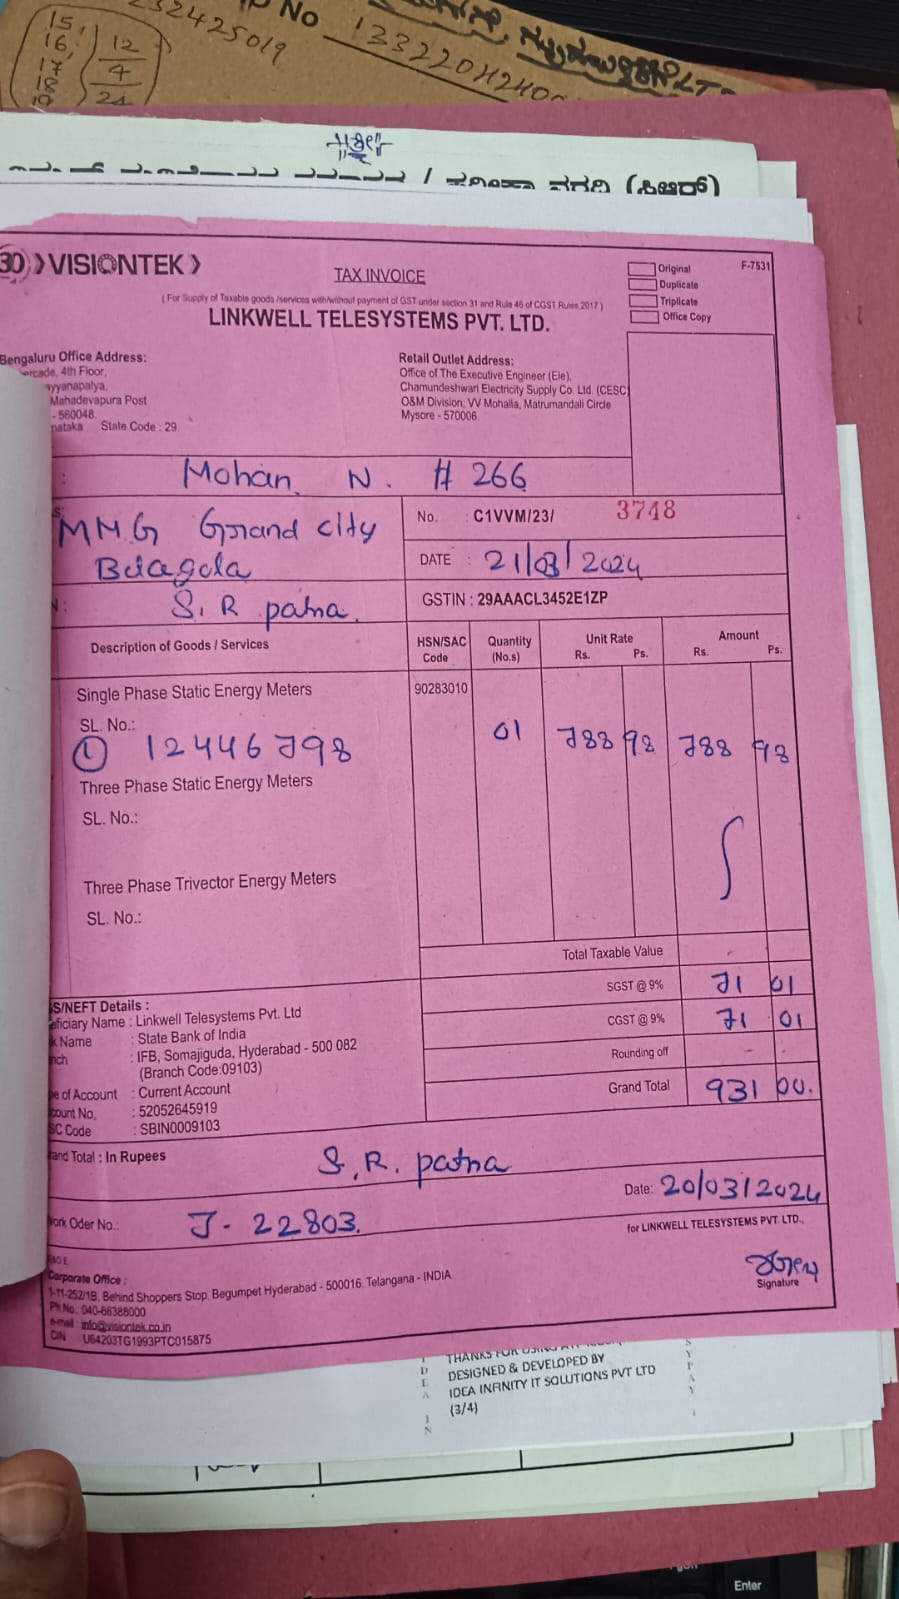 15,
16,
17,
18
19
12
4
24
232425019
P No 13322042400
ಪಕೀರ್ಣ
/ ನಗದಿ (ಪಿಆರ್)
30 VISIONTEK
TAX INVOICE
Original
Duplicate
Triplicate
Office Copy
F-7531
( For Supply of Taxable goods /services with/without payment of GST under section 31 and Rule 46 of CGST Rules,2017 )
LINKWELL TELESYSTEMS PVT. LTD.
Bengaluru Office Address:
4th Floor,
ayyanapalya,
Mahadevapura Post
- 560048.
nataka State Code : 29
Retail Outlet Address:
Office of The Executive Engineer (Ele),
Chamundeshwari Electricity Supply Co. Ltd. (CESC
O&M Division, VV Mohalla, Matrumandali Circle
Mysore - 570006.
: Mohan. N. # 266
MMG Grand city
Belagola
S. R patna.
No. : C1VVM/23/ 3748
DATE : 21/03/2024
GSTIN : 29AAACL3452E1ZP
Description of Goods / Services HSN/SAC Code Quantity (No.s) Unit Rate Rs. Ps. Amount Rs. Ps.
Single Phase Static Energy Meters 90283010
SL. No.:
① 12446798 01 788 98 788 98
Three Phase Static Energy Meters
SL. No.:
Three Phase Trivector Energy Meters
SL. No.:
Total Taxable Value -
SGST @ 9% 71 01
CGST @ 9% 71 01
Rounding off -
Grand Total 931 00.
GS/NEFT Details :
eficiary Name : Linkwell Telesystems Pvt. Ltd
k Name : State Bank of India
nch : IFB, Somajiguda, Hyderabad - 500 082
(Branch Code:09103)
e of Account : Current Account
count No. : 52052645919
SC Code : SBIN0009103
and Total : In Rupees S. R. patna
Date: 20/03/2024
Work Oder No.: J- 22803.
for LINKWELL TELESYSTEMS PVT. LTD.,
Signature
Corporate Office :
1-11-252/1B, Behind Shoppers Stop, Begumpet Hyderabad - 500016. Telangana - INDIA
Ph No : 040-66388000
e-mail info@visiontek.co.in
CIN U64203TG1993PTC015875
THANKS FOR USING
DESIGNED & DEVELOPED BY
IDEA INFINITY IT SOLUTIONS PVT LTD
(3/4)
Enter